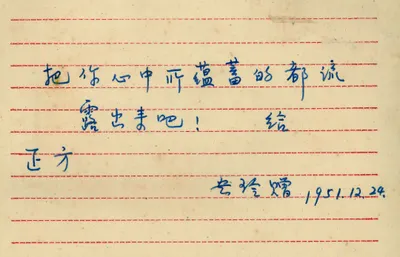 把你心中所蕴蓄的都流
露出来吧! 给
正方
玲赠 1951.12.24.